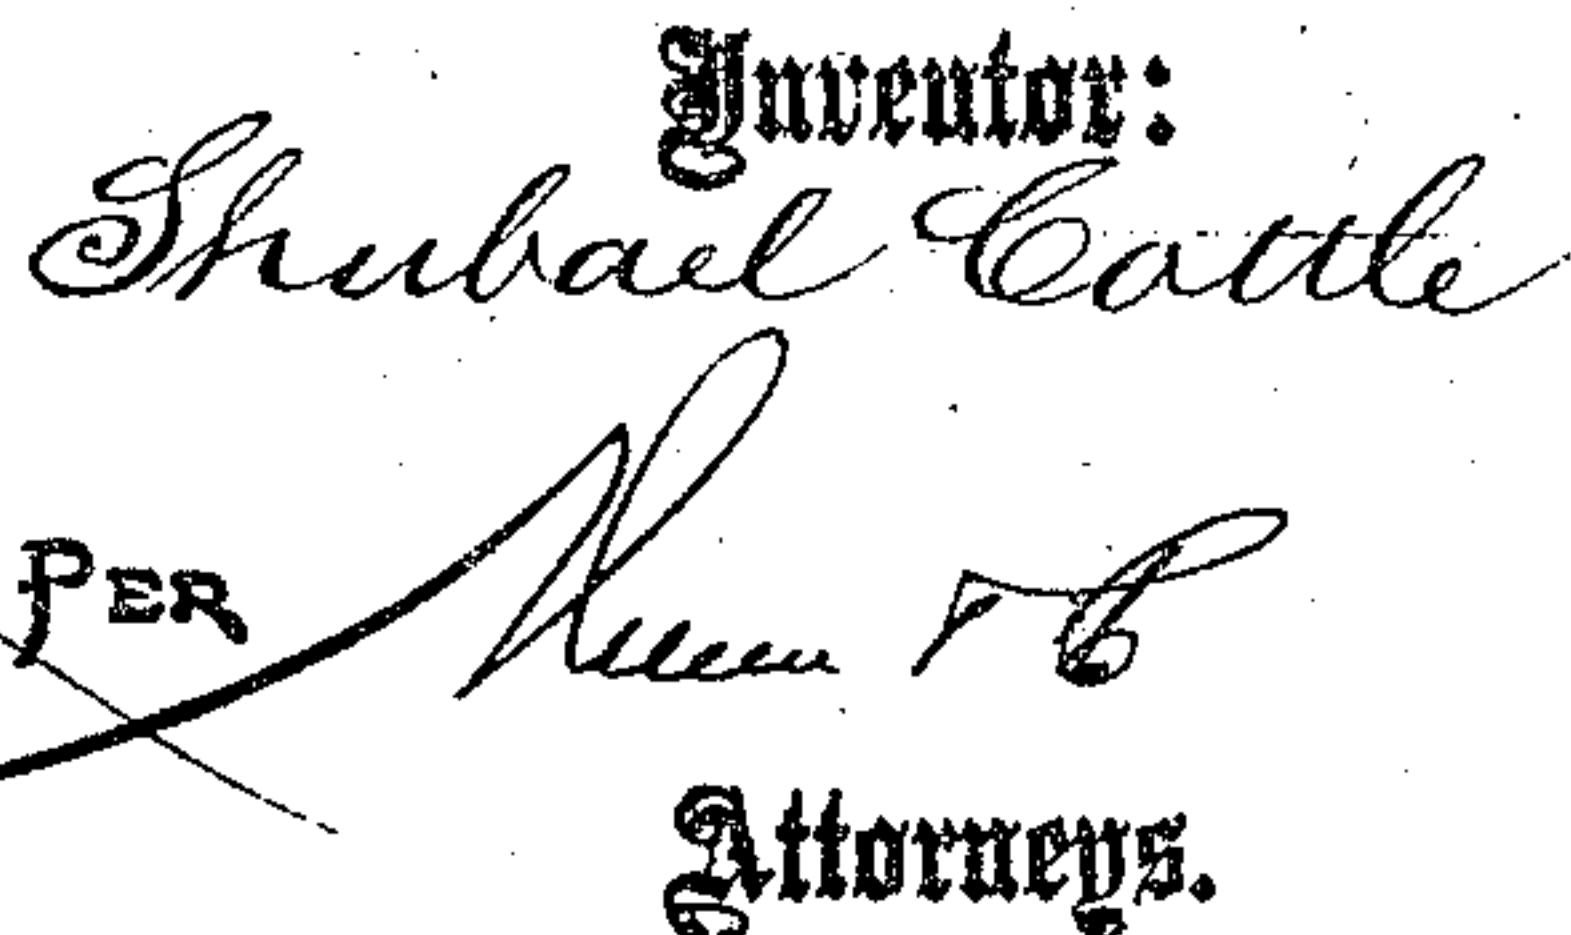 Inventor:
Shubael Cottle
PER
Attorneys.